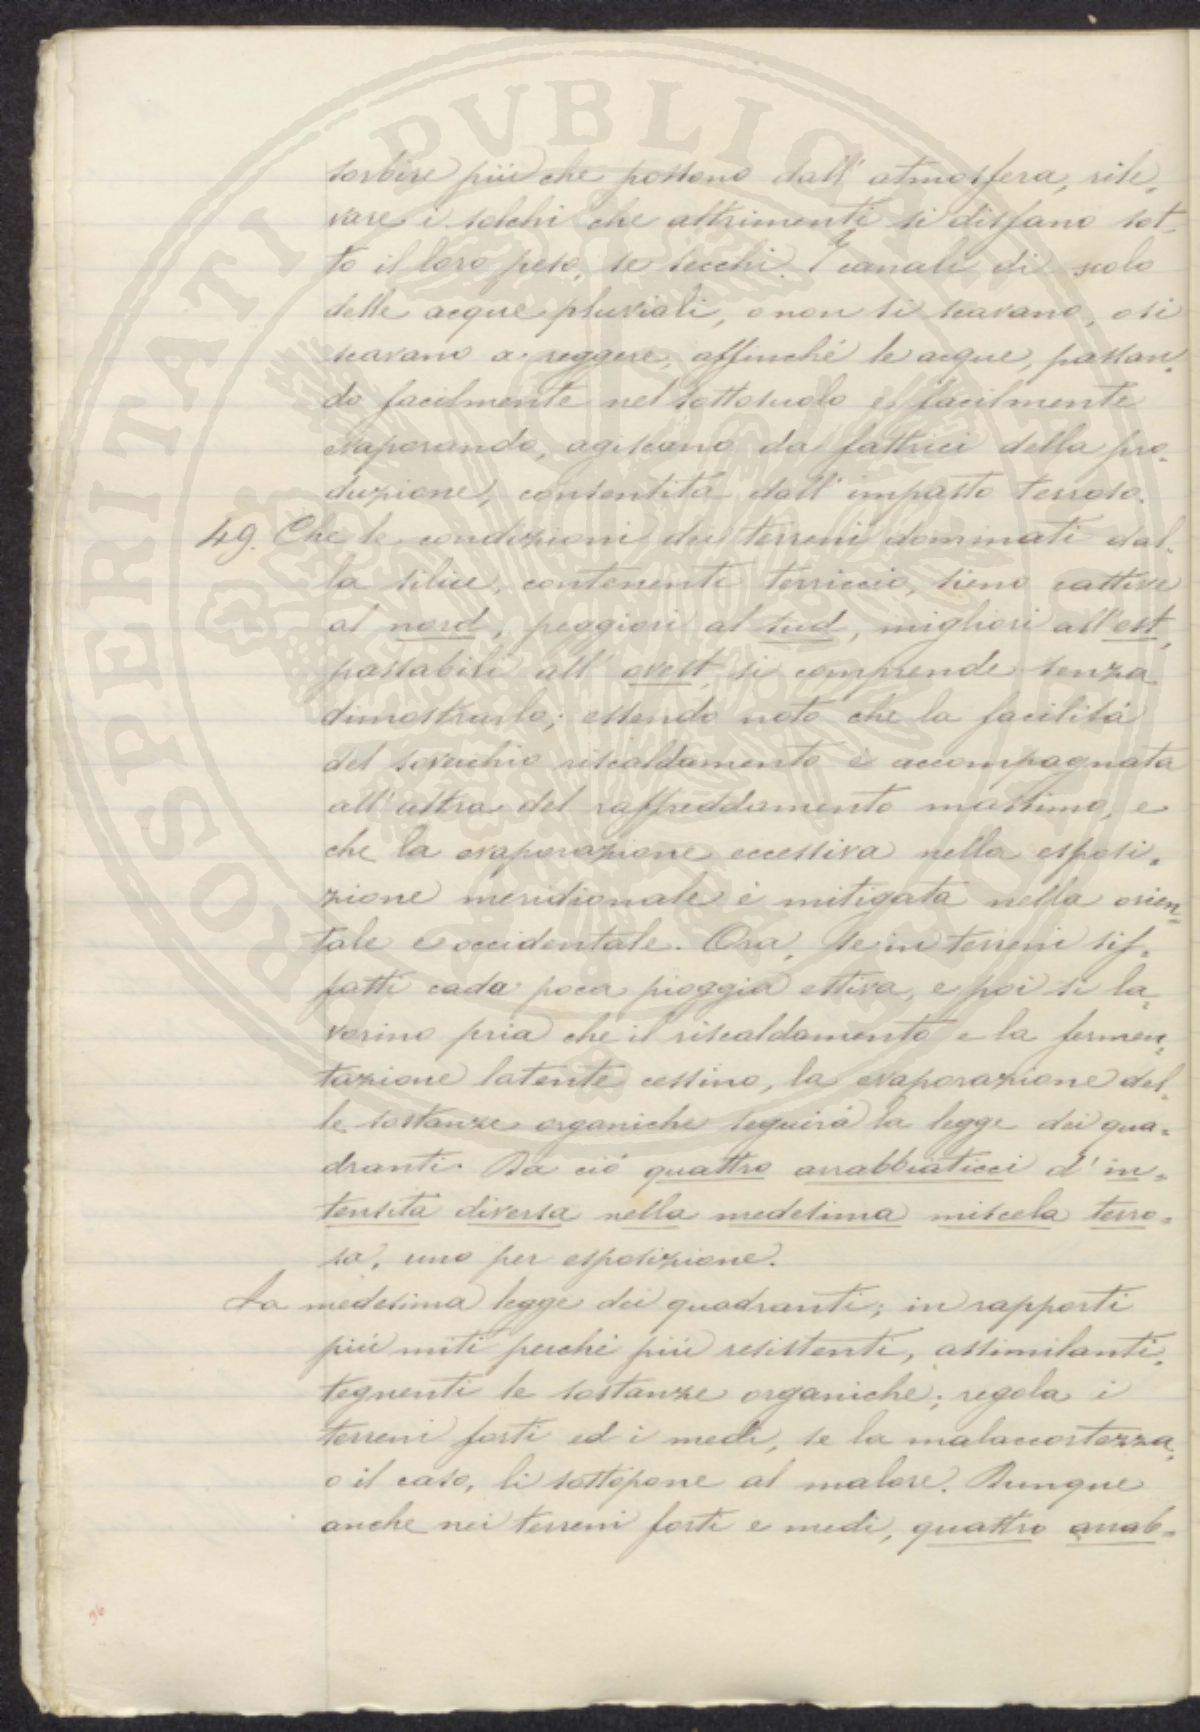 sorbire più che possono dall'atmosfera, rile-
vare i solchi che altrimenti si disfano sot-
to il loro peso, se secchi. I canali di scolo
delle acque pluviali, o non si scavano, o si
scavano a reggere, affinché le acque, passan-
do facilmente nel sottosuolo e facilmente
evaporando, agiscano da fattrici della pro-
duzione, consentita dall'impasto terroso.
49. Che le condizioni dei terreni dominati dal-
la silice, contenenti terriccio, sieno cattive
al nord, peggiori al sud, migliori all'est,
passabili all'ovest, si comprende senza
dimostrarlo; essendo noto che la facilità
del soverchio riscaldamento è accompagnata
all'altra del raffreddamento massimo, e
che la evaporazione eccessiva nella esposi-
zione meridionale è mitigata nella orien-
tale e occidentale. Ora, se in terreni sif-
fatti cada poca pioggia estiva, e poi si la-
vorino pria che il riscaldamento e la fermen-
tazione latente cessino, la evaporazione del-
le sostanze organiche seguirà la legge dei qua-
dranti. Da ciò quattro arrabbiaticci d'in-
tensità diversa nella medesima miscela terro-
sa, uno per esposizione.
La medesima legge dei quadranti; in rapporti
più miti perchè più resistenti, assimilanti,
tegnenti le sostanze organiche; regola i
terreni forti ed i medi, se la malaccortezza,
o il caso, li sottopone al malore. Dunque
anche nei terreni forti e medi, quattro arrab-
36
PROSPERITATI PVBLICAE